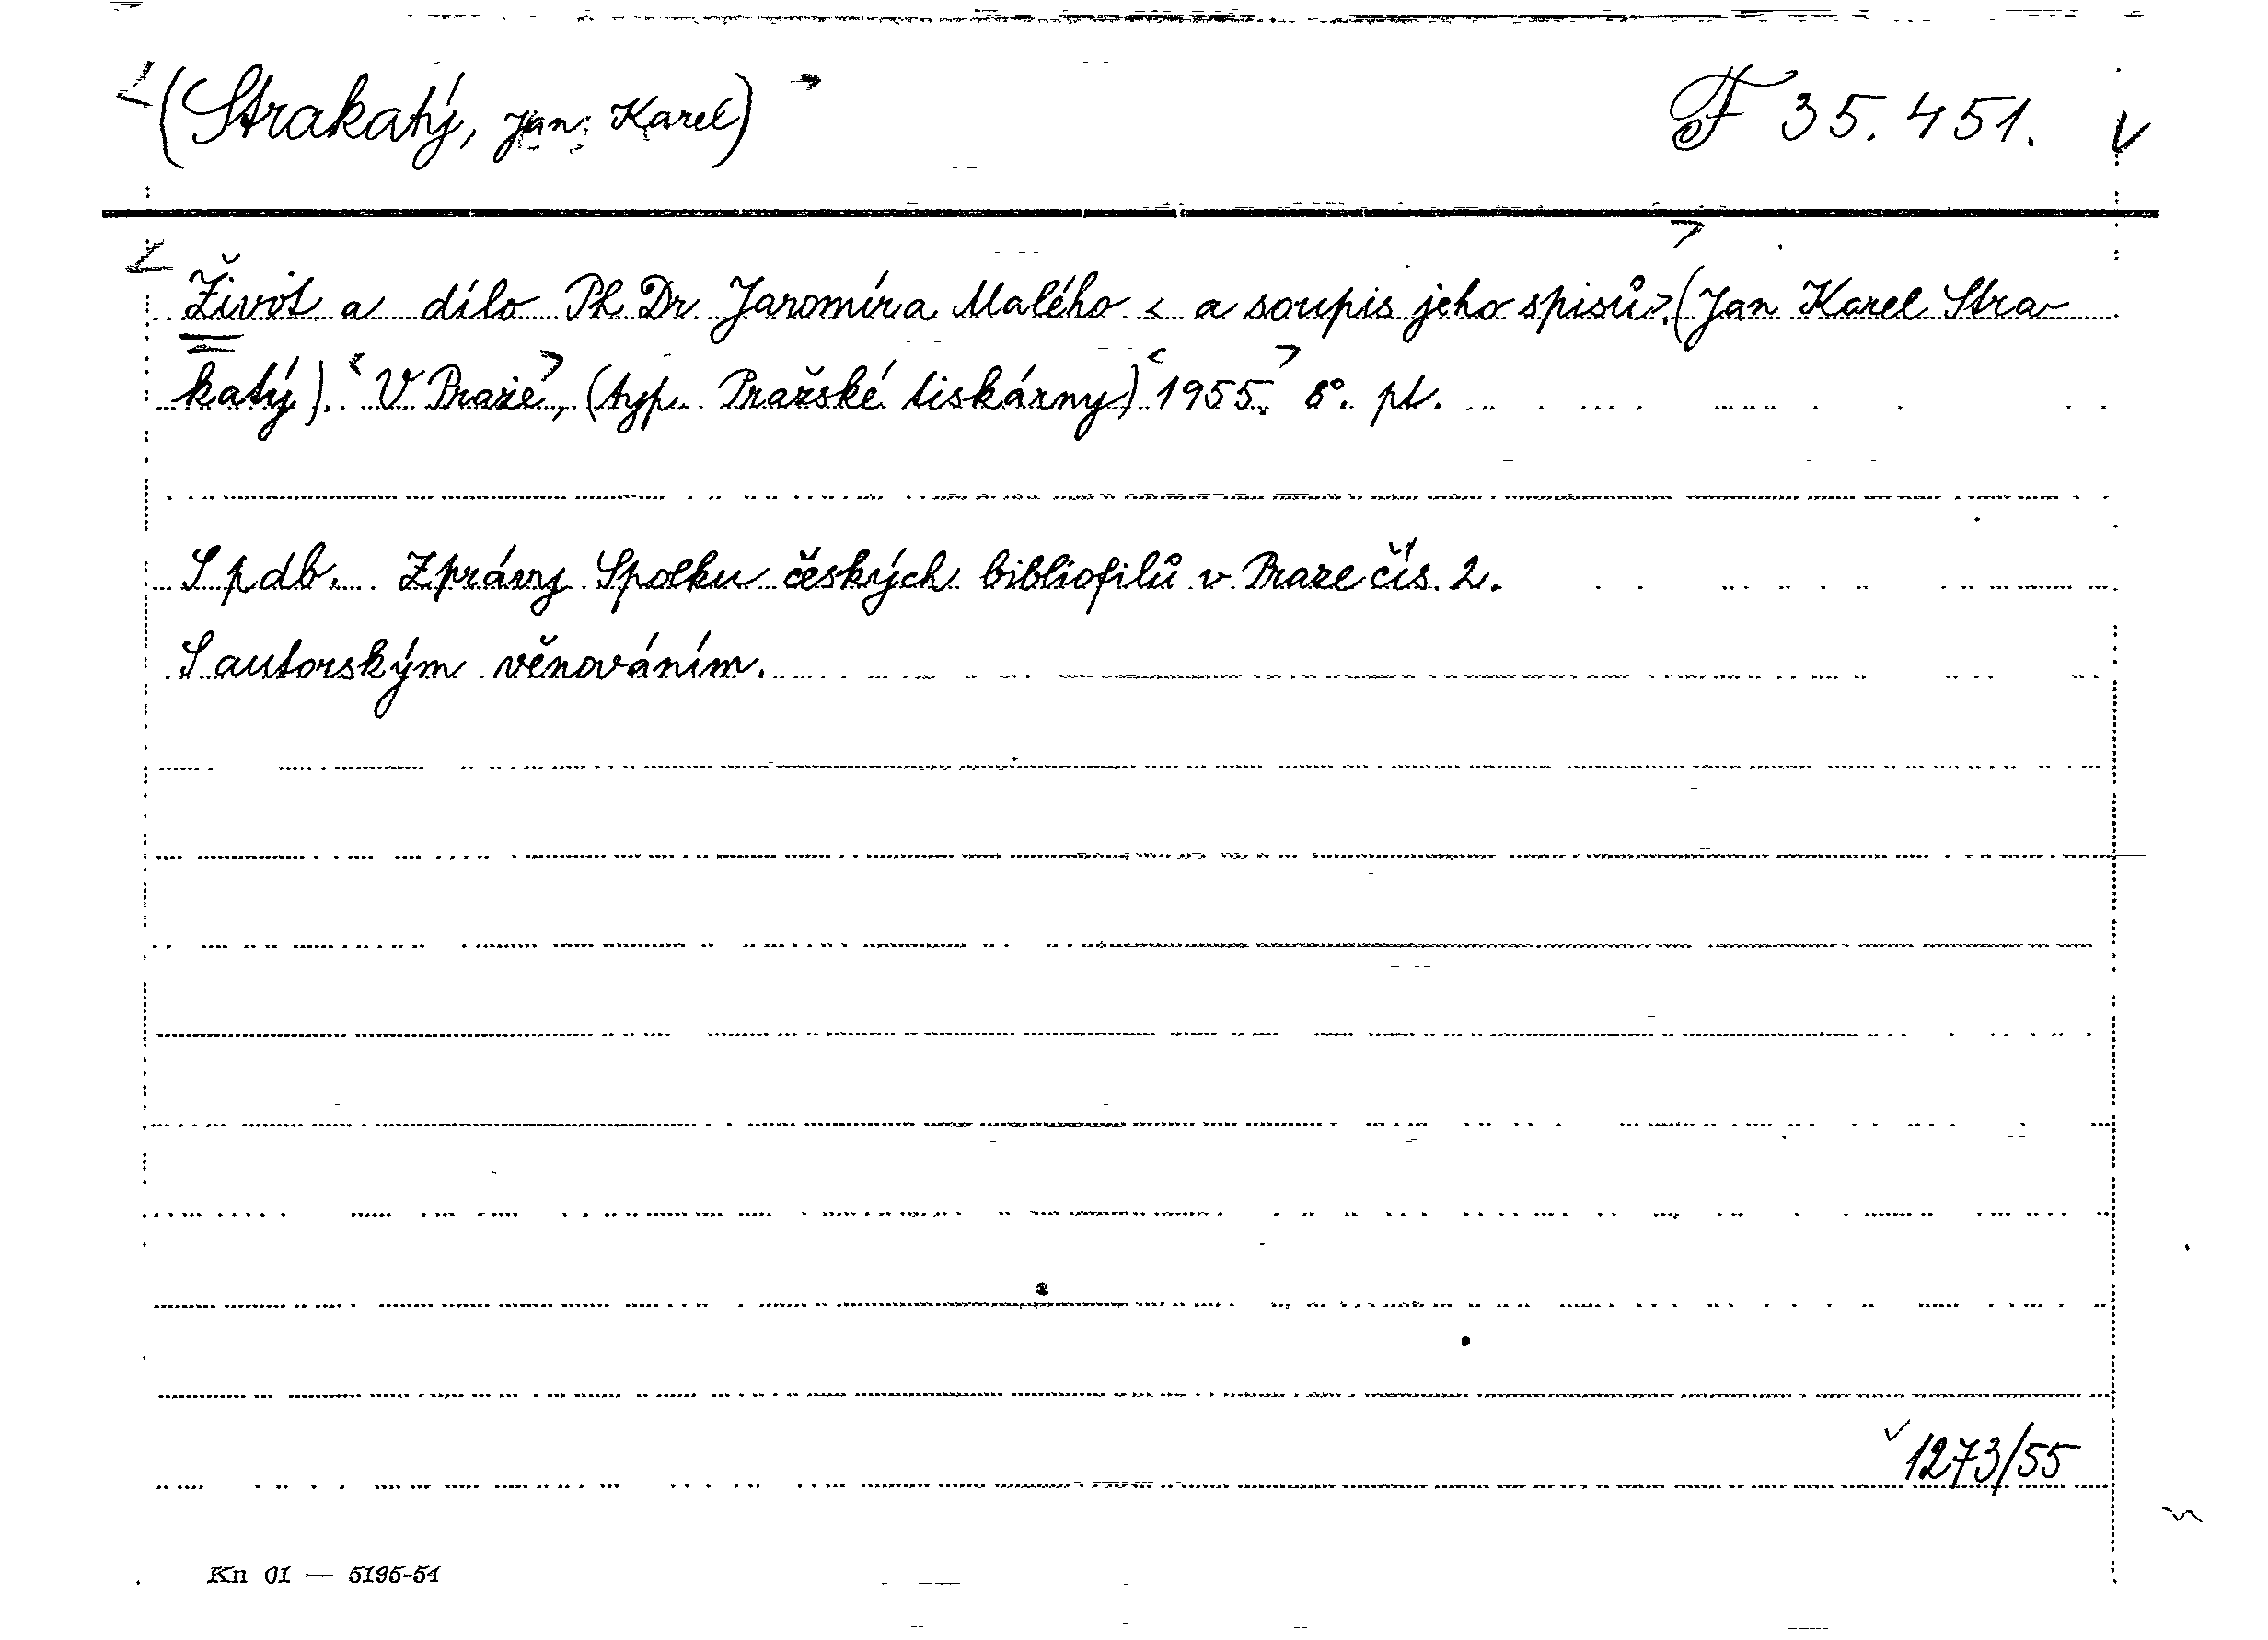 (Strakatý, Jan Karel) F 35.451.
Život a dílo Ph Dr Jaromíra Malého < a soupis jeho spisů>.(Jan Karel Stra-
katý). <V Praze>, (typ. Pražské tiskárny) <1955.> 8°. pt.
S pdb. Zprávy Spolku českých bibliofilů v Praze čís. 2.
S autorským věnováním.
1273/55
Kn 01 — 5195-54